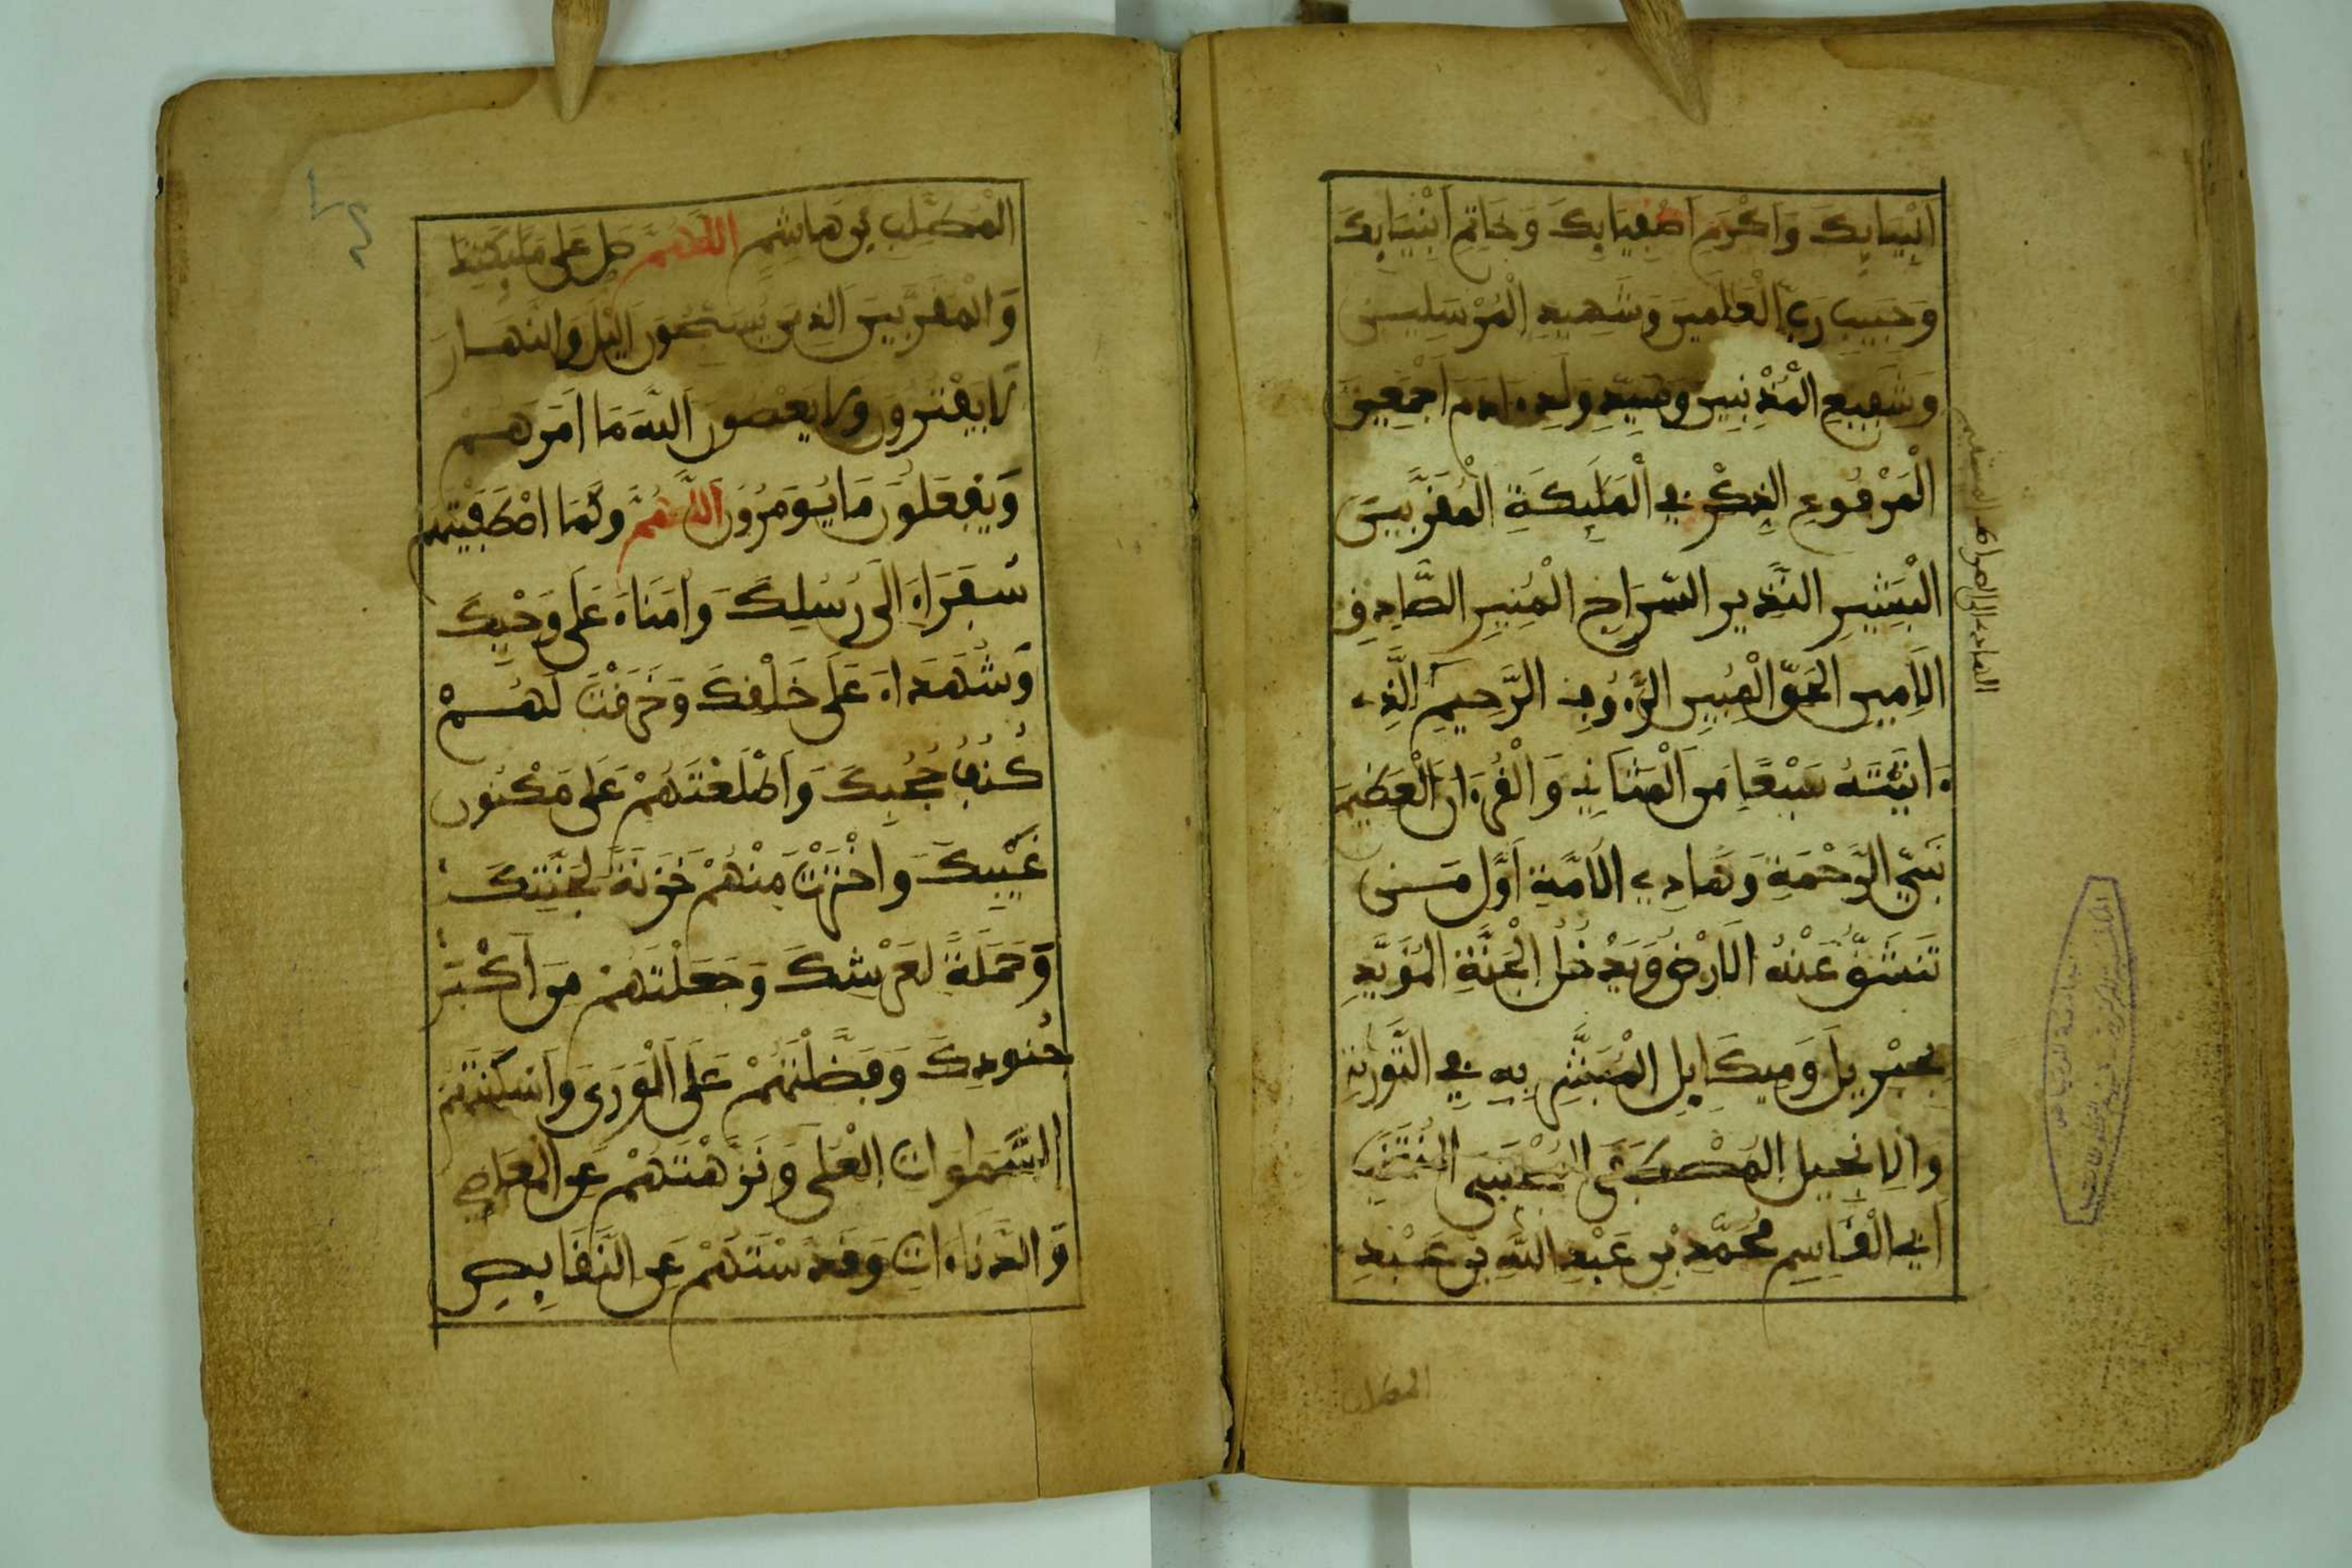 اَنْبِيَآئِكَ وَاَكْرَمِ اَصْفِيَآئِكَ وَخَاتِمِ اَنْبِيَآئِكَ
وَحَبِيبِ رَبِّ الْعَلَمِينَ وَشَهِيدِ الْمُرْسَلِينَ
وَشَفِيعِ الْمُذْنِبِينَ وَسَيِّدِ وَلَدِ ءَادَمَ اَجْمَعِينَ
الْمَرْفُوعِ الذِّكْرِ فِي الْمَلَئِكَةِ الْمُقَرَّبِينَ
الْبَشِيرِ النَّذِيرِ السِّرَاجِ الْمُنِيرِ الصَّادِقِ
الاَمِينِ الْحَقِّ الْمُبِينِ الرَّءُوفِ الرَّحِيمِ الَّذِي
ءَاتَيْتَهُ سَبْعًا مِّنَ الْمَثَانِي وَالْقُرْءَانَ الْعَظِيمَ
نَبِيِّ الرَّحْمَةِ وَهَادِي الاُمَّةِ اَوَّلِ مَنْ
تَنْشَقُّ عَنْهُ الاَرْضُ وَيَدْخُلُ الْجَنَّةَ الْمُؤَيَّدِ
بِجِبْرِيلَ وَمِيكَائِلَ الْمُبَشَّرِ بِهِ فِي التَّوْرَيةِ
وَالاِنْجِيلِ الْمُصْطَفَى الْمُجْتَبَى الْمُنْتَخَبِ
اَبِي الْقَاسِمِ مُحَمَّدِ بْنِ عَبْدِ اللَّهِ بْنِ عَبْدِ
المطلب
الهادي الى الصراط المستقيم
الْمُطَّلِبِ بْنِ هَاشِمٍ اللَّهُمَّ صَلِّ عَلَى مَلَئِكَتِكَ
وَالْمُقَرَّبِينَ الذِينَ يُسَبِّحُونَ اليْلَ وَالنَّهَارَ
لَا يَفْتُرُونَ وَلَا يَعْصُونَ اللَّهَ مَا اَمَرَهُمْ
وَيَفْعَلُونَ مَا يُومَرُونَ اللَّهُمَّ وَكَمَا اصْطَفَيْتَهُمْ
سُفَرَاءَ اِلَى رُسُلِكَ وَاُمَنَاءَ عَلَى وَحْيِكَ
وَشُهَدَاءَ عَلَى خَلْقِكَ وَخَرَقْتَ لَهُمْ
كُنُفَ حُجُبِكَ وَاَطْلَعْتَهُمْ عَلَى مَكْنُونِ
غَيْبِكَ وَاخْتَرْتَ مِنْهُمْ خَزَنَةً لِجَنَّتِكَ
وَحَمَلَةً لِعَرْشِكَ وَجَعَلْتَهُمْ مِنْ اَكْثَرِ
جُنُودِكَ وَفَضَّلْتَهُمْ عَلَى الْوَرَى وَاَسْكَنْتَهُمُ
السَّمَاوَاتِ الْعُلَى وَنَزَّهْتَهُمْ عَنِ الْمَعَاصِي
وَالدَّنَاءَاتِ وَقَدَّسْتَهُمْ عَنِ النَّقَائِصِ